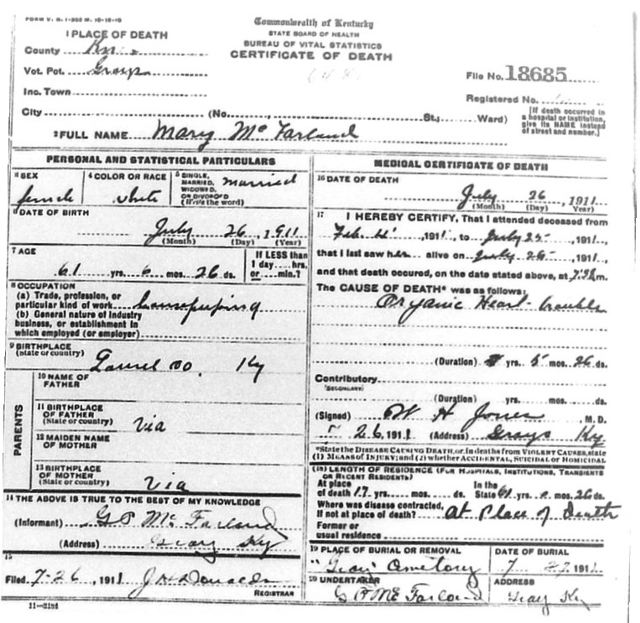 FORM V. S. 1-
Commonwealth of Kentucky
STATE BOARD OF HEALTH
BUREAU OF VITAL STATISTICS
CERTIFICATE OF DEATH
1 PLACE OF DEATH
County
Vot. Pct. Grays
Inc. Town
City (No. St.; Ward)
File No. 18685
Registered No.
[If death occurred in a hospital or institution, give its NAME instead of street and number.]
2 FULL NAME Mary McFarland
PERSONAL AND STATISTICAL PARTICULARS
3 SEX female
4 COLOR OR RACE white
5 SINGLE, MARRIED, WIDOWED, OR DIVORCED (Write the word) married
6 DATE OF BIRTH
July 26, 1911
(Month) (Day) (Year)
7 AGE
61 yrs. 6 mos. 26 ds.
If LESS than 1 day....hrs. or....min.?
8 OCCUPATION
(a) Trade, profession, or particular kind of work
(b) General nature of industry business, or establishment in which employed (or employer)
9 BIRTHPLACE
(State or country) Laurel Co. Ky
PARENTS
10 NAME OF FATHER
11 BIRTHPLACE OF FATHER (State or country) Via
12 MAIDEN NAME OF MOTHER
13 BIRTHPLACE OF MOTHER (State or country) Via
14 THE ABOVE IS TRUE TO THE BEST OF MY KNOWLEDGE
(Informant) G P McFarland
(Address) Gray Ky
15
Filed 7-26, 1911 REGISTRAR
11-3184
MEDICAL CERTIFICATE OF DEATH
16 DATE OF DEATH
July 26, 1911
(Month) (Day) (Year)
17 I HEREBY CERTIFY, That I attended deceased from
Feb, 1911, to July 25, 1911,
that I last saw her alive on July 25, 1911,
and that death occured, on the date stated above, at m.
The CAUSE OF DEATH* was as follows:
Organic Heart trouble
(Duration) yrs. 5 mos. 26 ds.
Contributory
(SECONDARY)
(Duration) yrs. mos. ds.
(Signed) W H Jones M.D.
26, 1911 (Address) Grays Ky
*State the DISEASE CAUSING DEATH, or, in deaths from VIOLENT CAUSES, state (1) MEANS OF INJURY; and (2) whether ACCIDENTAL, SUICIDAL or HOMICIDAL.
18 LENGTH OF RESIDENCE (FOR HOSPITALS, INSTITUTIONS, TRANSIENTS OR RECENT RESIDENTS)
At place of death 17 yrs. mos. ds. In the State 61 yrs. mos. 26 ds.
Where was disease contracted, If not at place of death? at Place of Death
Former or usual residence
19 PLACE OF BURIAL OR REMOVAL DATE OF BURIAL
Cemetery 7 27 1911
20 UNDERTAKER ADDRESS
G P McFarland Gray Ky